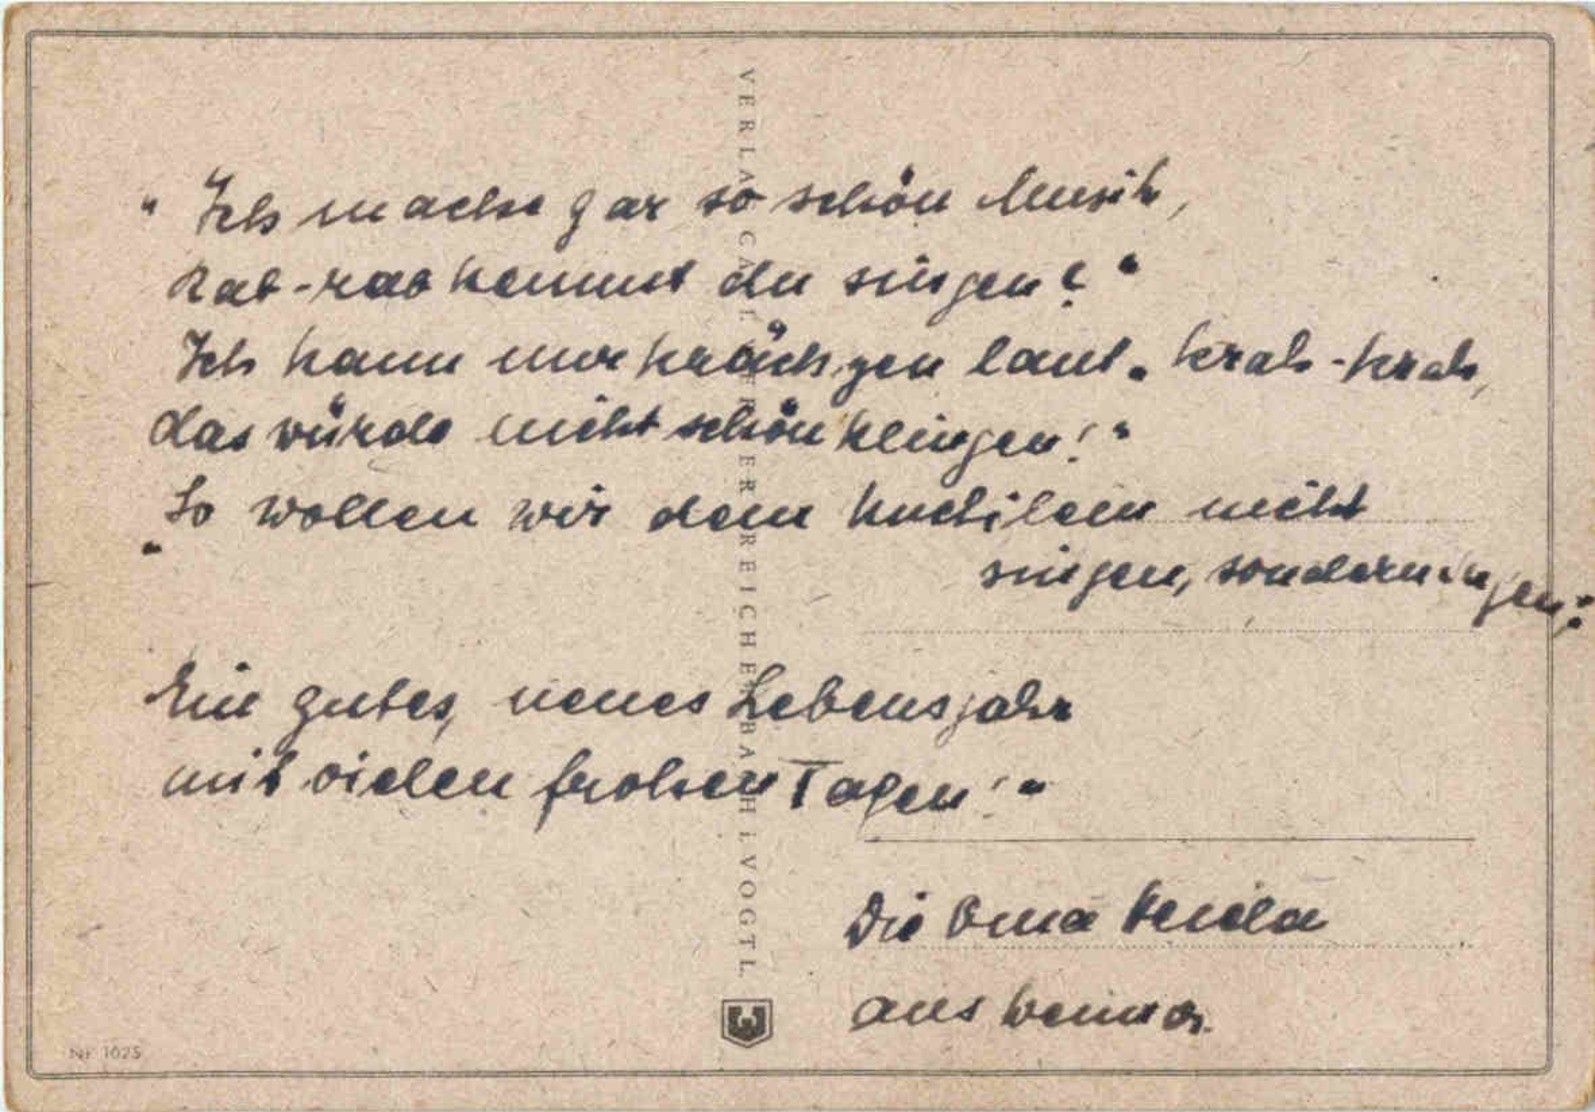 " Ich mache gar so schön Musik,
Rab-rab kannst du singen? "
Ich kann nur krächzen laut " krah-krah,
das würde nicht schön klingen! "
" So wollen wir dem nicht
singen, sondern
Ein gutes, neues Lebensjahr
mit vielen frohen Tagen! "
Die Oma
aus Weimar.
VERLAG CARL WERNER REICHENBACH i. VOGTL.
Nr. 1025